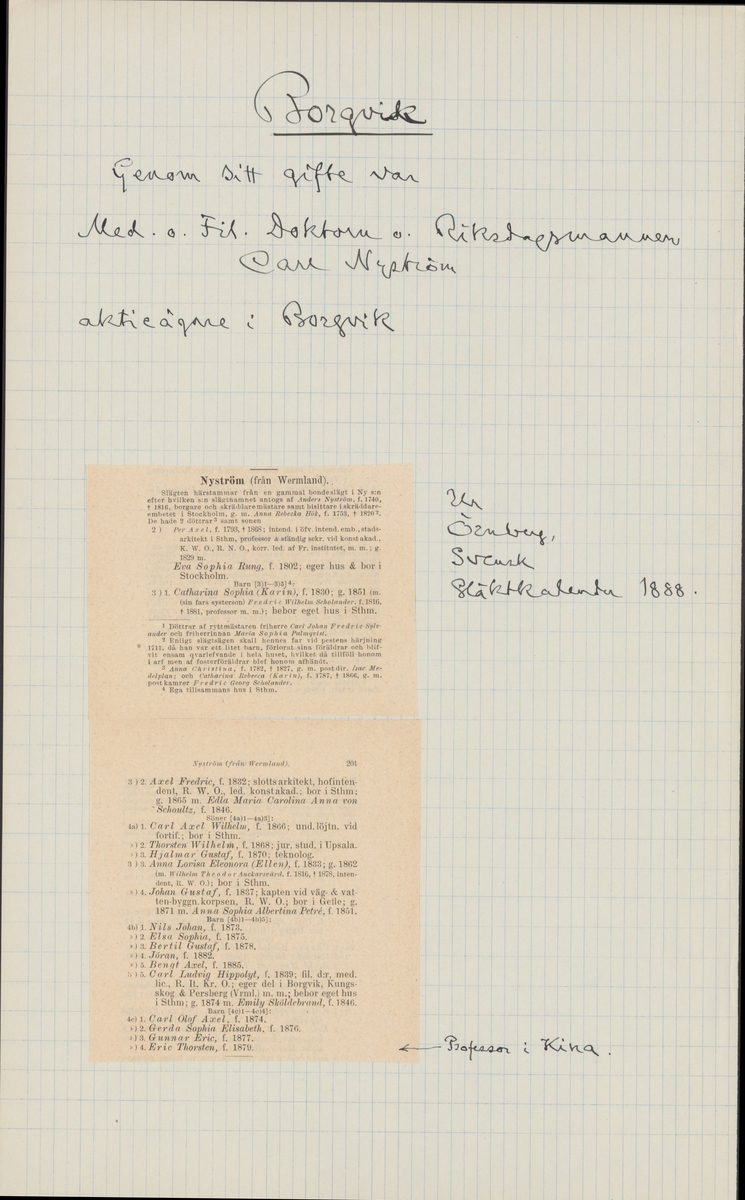 Borgvik
Genom sitt gifte var
Med. o. Fil. Doktorn o. Riksdagsmannen
Carl Nyström
aktieägare i Borgvik
Nyström (från Wermland).
Slägten härstammar från en gammal bondeslägt i Ny s:n
efter hvilken s:n slägtnamnet antogs af Anders Nyström, f. 1740,
† 1816, borgare och skräddaremästare samt bisittare i skräddare-
embetet i Stockholm, g. m. Anna Rebecka Hök, f. 1753, † 1820 ².
De hade 2 döttrar ³ samt sonen
2) Per Axel, f. 1793, † 1868; intend. i öfv. intend. emb., stads-
arkitekt i Sthm, professor & ständig sekr. vid konstakad.,
K. W. O., R. N. O., korr. led. af Fr. institutet, m. m.; g.
1829 m.
Eva Sophia Rung, f. 1802; eger hus & bor i
Stockholm.
Barn [3)1—3)5] ⁴:
3) 1. Catharina Sophia (Karin), f. 1830; g. 1851 (m.
(sin fars systerson) Fredric Wilhelm Scholander, f. 1816,
† 1881, professor m. m.); bebor eget hus i Sthm.
¹ Döttrar af ryttmästaren friherre Carl Johan Fredric Sylv-
ander och friherrinnan Maria Sophia Palmqvist.
² Enligt slägtsägen skall hennes far vid pestens härjning
1711, då han var ett litet barn, förlorat sina föräldrar och blif-
vit ensam qvarlefvande i hela huset, hvilket då tillföll honom
i arf men af fosterföräldrar blef honom afhändt.
³ Anna Christina, f. 1782, † 1827, g. m. postdir. Isac Me-
delplan; och Catharina Rebecca (Karin), f. 1787, † 1866, g. m.
postkamrer Fredric Georg Scholander.
⁴ Ega tillsammans hus i Sthm.
Ur
Örnberg,
Svensk
Släktkalender 1888.
Nyström (från Wermland). 201
3) 2. Axel Fredric, f. 1832; slottsarkitekt, hofinten-
dent, R. W. O., led. konstakad.; bor i Sthm;
g. 1865 m. Edla Maria Carolina Anna von
Schoultz, f. 1846.
Söner [4a)1—4a)3]:
4a) 1. Carl Axel Wilhelm, f. 1866; und.löjtn. vid
fortif.; bor i Sthm.
») 2. Thorsten Wilhelm, f. 1868; jur. stud. i Upsala.
») 3. Hjalmar Gustaf, f. 1870; teknolog.
3) 3. Anna Lovisa Eleonora (Ellen), f. 1833; g. 1862
(m. Wilhelm Theodor Anckarsvärd, f. 1816, † 1878, inten-
dent, R. W. O.); bor i Sthm.
») 4. Johan Gustaf, f. 1837; kapten vid väg- & vat-
ten-byggn.korpsen, R. W. O.; bor i Gefle; g.
1871 m. Anna Sophia Albertina Petré, f. 1851.
Barn [4b)1—4b)5]:
4b) 1. Nils Johan, f. 1873.
») 2. Elsa Sophia, f. 1875.
») 3. Bertil Gustaf, f. 1878.
») 4. Jöran, f. 1882.
») 5. Bengt Axel, f. 1885.
3) 5. Carl Ludvig Hippolyt, f. 1839; fil. d:r, med.
lic., R. It. Kr. O.; eger del i Borgvik, Kungs-
skog & Persberg (Vrml.) m. m.; bebor eget hus
i Sthm; g. 1874 m. Emily Sköldebrand, f. 1846.
Barn [4c)1—4c)4]:
4c) 1. Carl Olof Axel, f. 1874.
») 2. Gerda Sophia Elisabeth, f. 1876.
») 3. Gunnar Eric, f. 1877.
») 4. Eric Thorsten, f. 1879.
Professor i Kina.